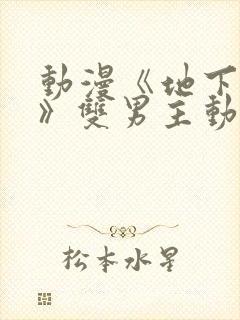 動漫《地下
》雙男主動
松本水星